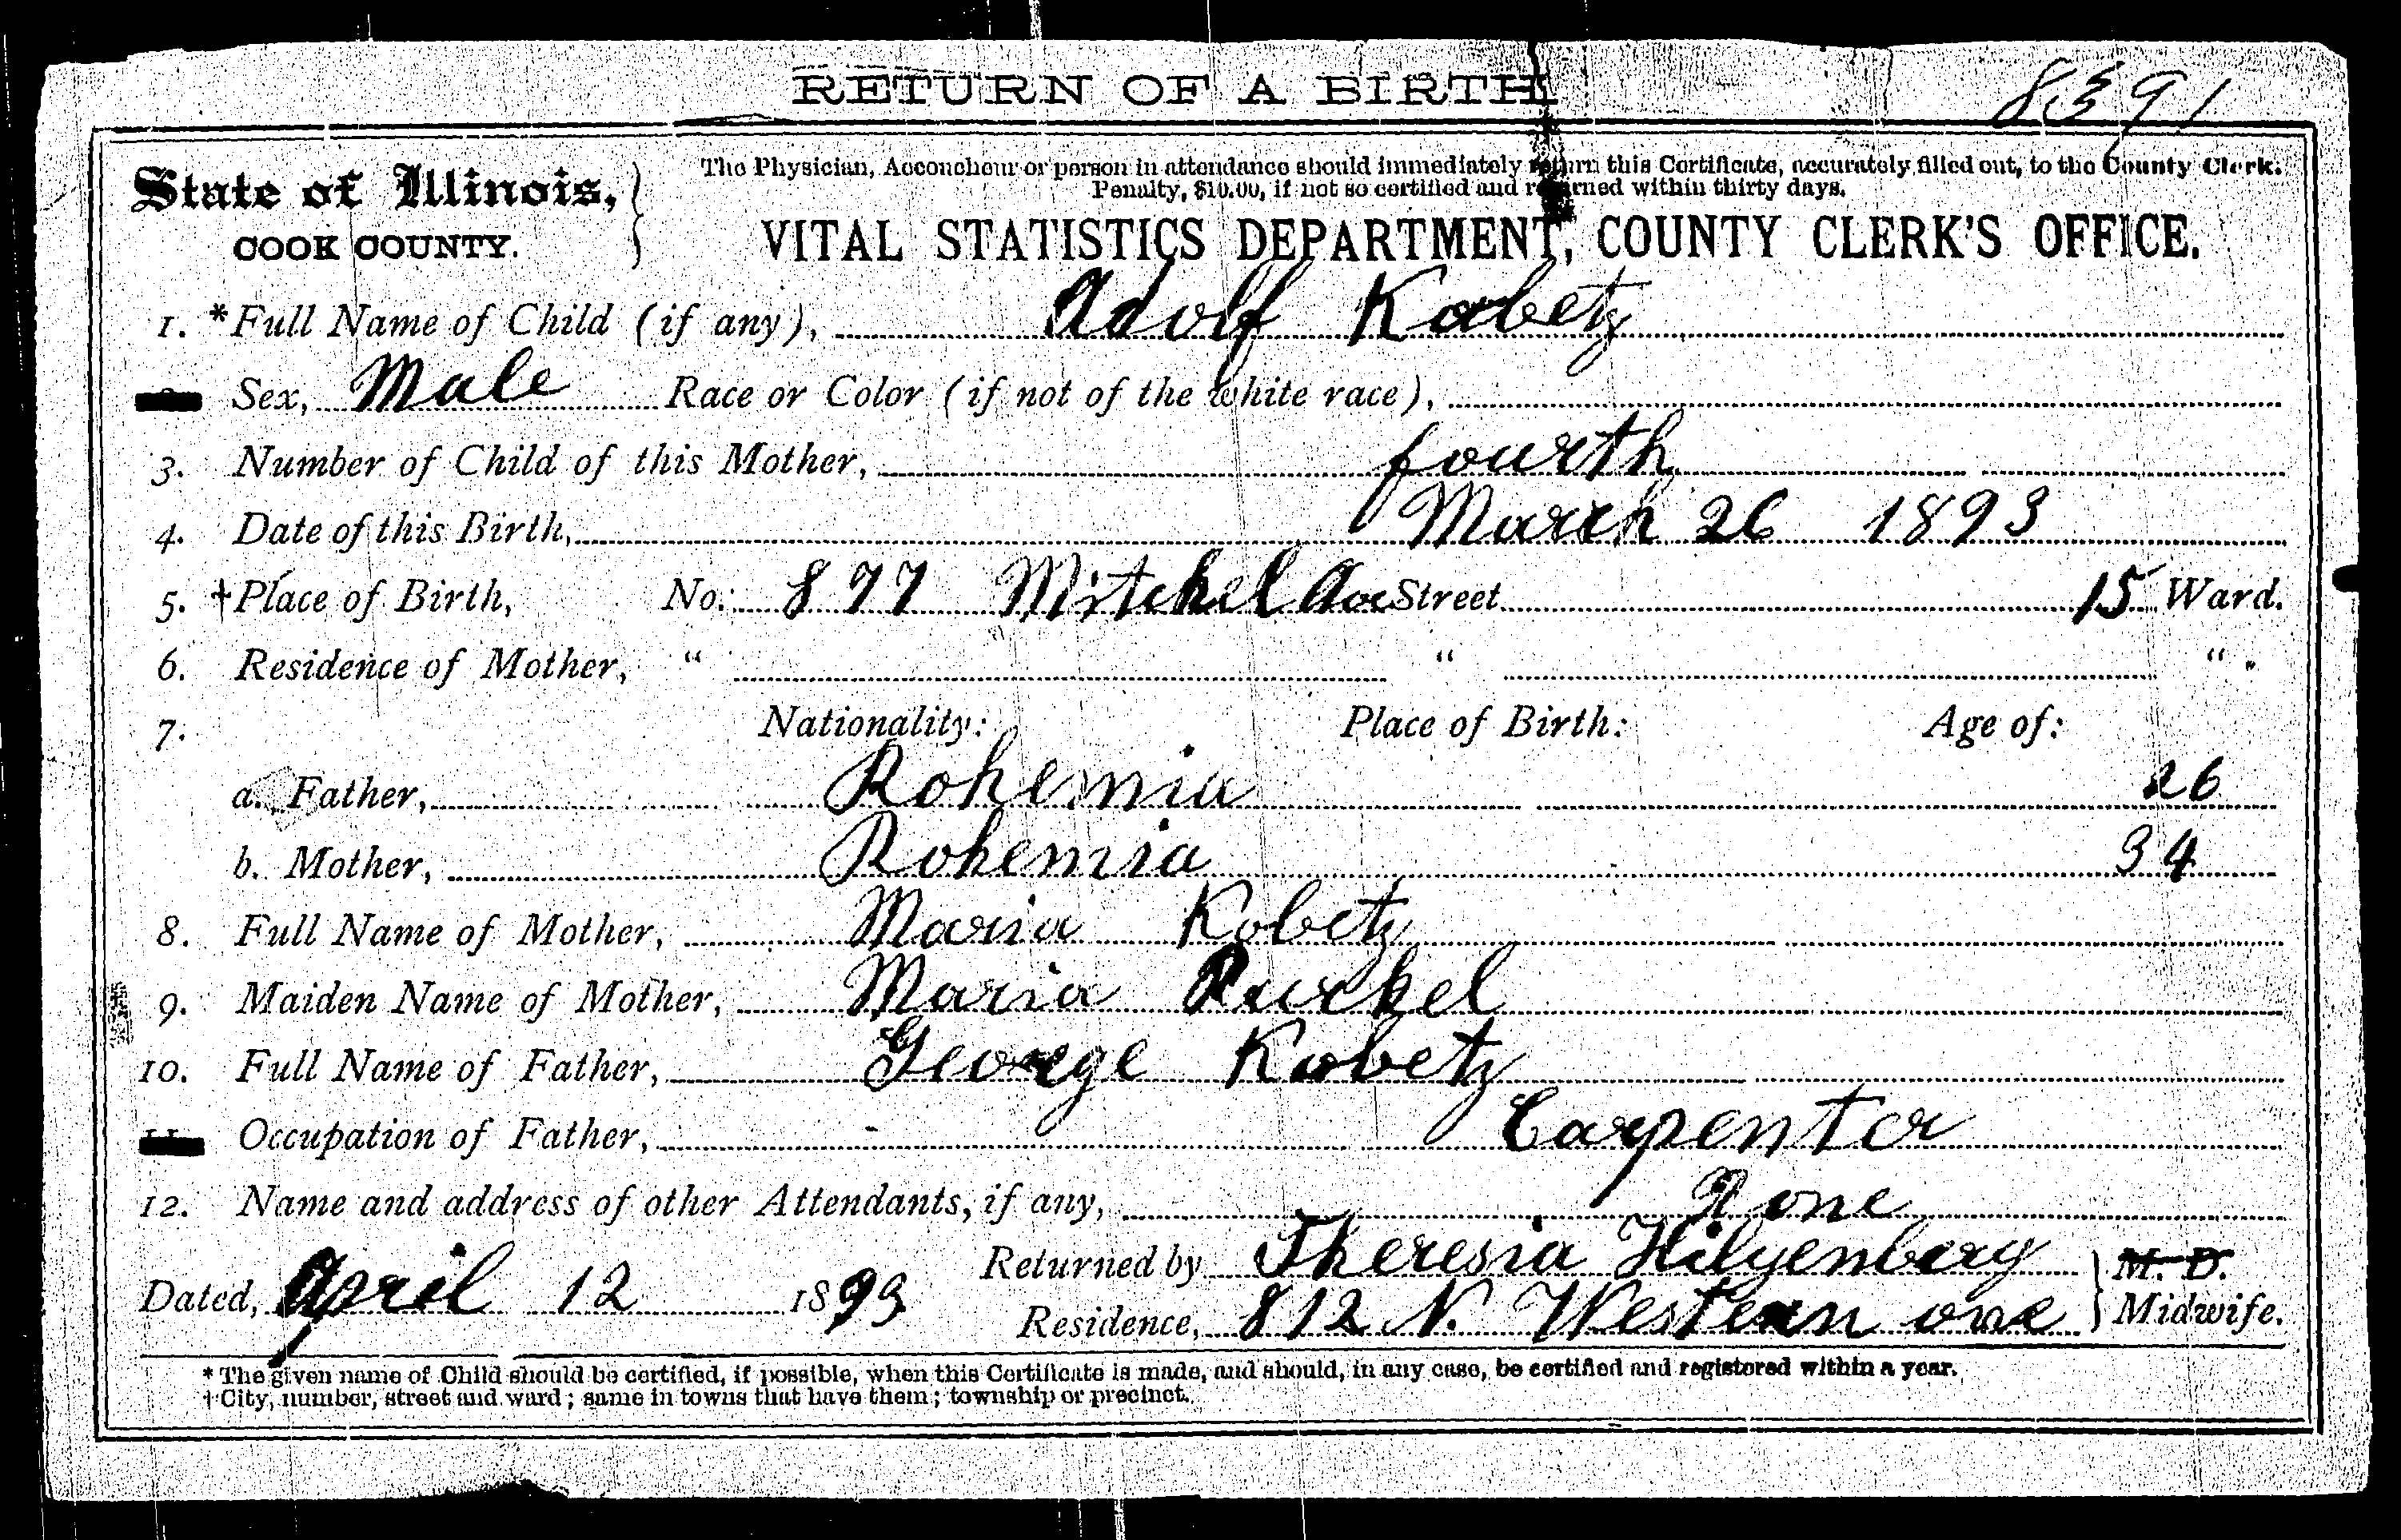 RETURN OF A BIRTH
8391
State of Illinois,
COOK COUNTY.
The Physician, Accoucheur or person in attendance should immediately return this Certificate, accurately filled out, to the County Clerk.
Penalty, $10.00, if not so certified and returned within thirty days.
VITAL STATISTICS DEPARTMENT, COUNTY CLERK'S OFFICE.
1. *Full Name of Child (if any), Adolf Kabetz
Sex, Male Race or Color (if not of the white race),
3. Number of Child of this Mother, fourth
4. Date of this Birth, March 26 1893
5. †Place of Birth, No. 877 Mitchel Ave Street 15 Ward.
6. Residence of Mother, " " " "
7. Nationality: Place of Birth: Age of:
a. Father, Bohemia 26
b. Mother, Bohemia 34
8. Full Name of Mother, Maria Kobetz
9. Maiden Name of Mother, Maria
10. Full Name of Father, George Kobetz
11. Occupation of Father, Carpenter
12. Name and address of other Attendants, if any, None
Returned by Theresia M. D.
Dated, April 12 1893
Residence, 812 N. Western ave Midwife.
* The given name of Child should be certified, if possible, when this Certificate is made, and should, in any case, be certified and registered within a year.
† City, number, street and ward; same in towns that have them; township or precinct.